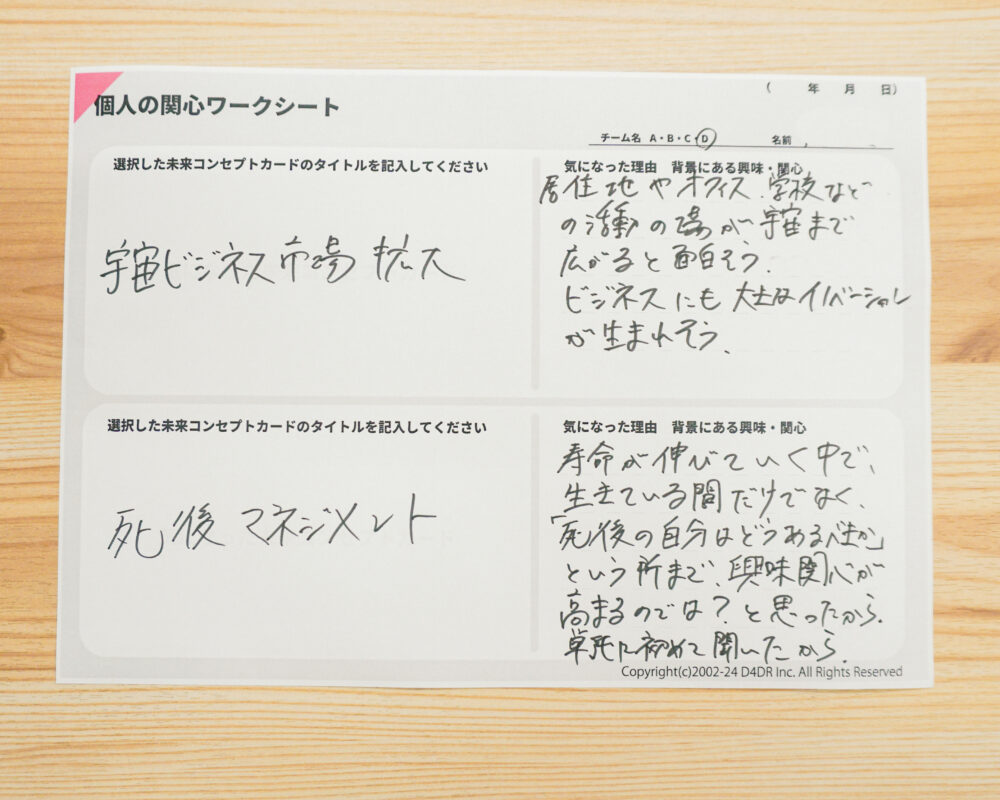 ( 年 月 日)
個人の関心ワークシート
チーム名 A・B・C・D 名前
選択した未来コンセプトカードのタイトルを記入してください
宇宙ビジネス市場拡大
気になった理由 背景にある興味・関心
居住地やオフィス、学校など
の活動の場が宇宙まで
広がると面白そう.
ビジネスにも大きなイノベーション
が生まれそう.
選択した未来コンセプトカードのタイトルを記入してください
死後マネジメント
気になった理由 背景にある興味・関心
寿命が伸びていく中で、
生きている間だけでなく、
「死後の自分はどうあるべきか」
という所まで、興味関心が
高まるのでは?と思ったから.
単純に初めて聞いたから.
Copyright(c)2002-24 D4DR Inc. All Rights Reserved